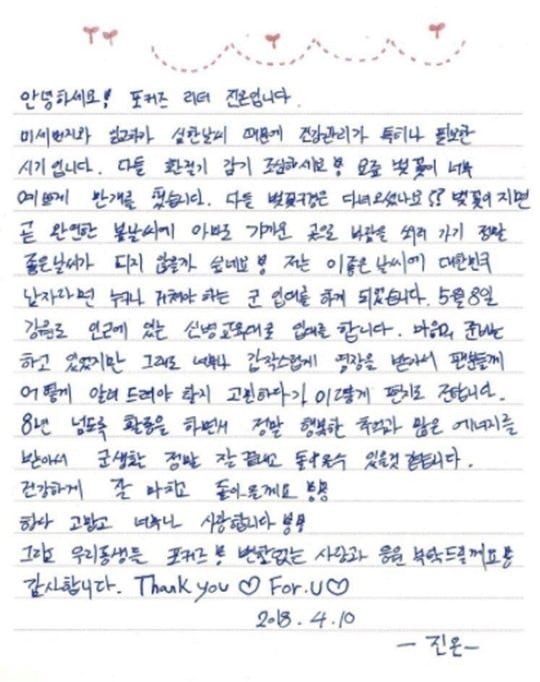 안녕하세요! 포커즈 리더 진온입니다.
미세먼지와 일교차가 심한날씨 때문에 건강관리가 특히나 필요한
시기입니다. 다들 환절기 감기 조심하시고!! 요즘 벚꽃이 너무
예쁘게 만개를 했습니다. 다들 벚꽃구경은 다녀오셨나요?? 벚꽃이 지면
곧 완연한 봄날씨에 아마도 가까운 곳으로 바람을 쐬러 가기 정말
좋은날씨가 되지 않을까 싶네요!! 저는 이좋은 날씨에 대한민국
남자라면 누구나 거쳐야 하는 군 입대를 하게 되었습니다. 5월 8일
강원도 인근에 있는 신병교육대로 입대를 합니다. 마음의 준비는
하고 있었지만 그래도 너무나 갑작스럽게 영장을 받아서 팬분들께
어떻게 알려 드려야 할지 고민하다가 이렇게 편지로 전합니다.
8년 넘도록 활동을 하면서 정말 행복한 추억과 많은 에너지를
받아서 군생활 정말 잘 끝내고 돌아올수 있을것 같습니다.
건강하게 잘 마치고 돌아올께요!!
항상 고맙고 너무나 사랑합니다!!
그리고 우리동생들 포커즈!! 변함없는 사랑과 응원 부탁드릴께요!!
감사합니다. Thank you ♡ For.U♡
2018.4.10
- 진온 -